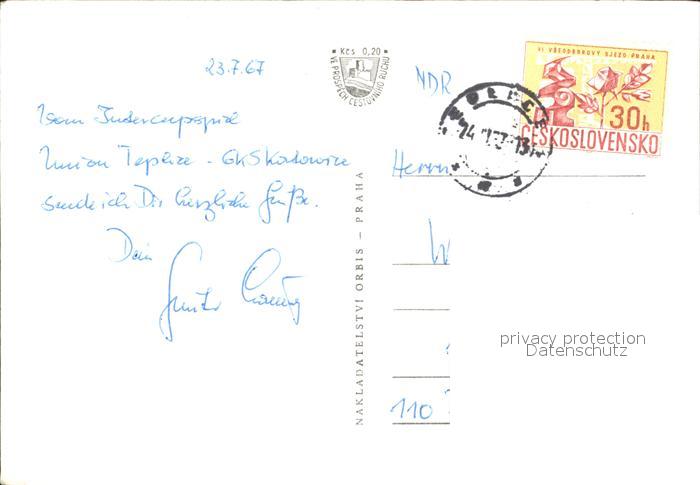 23.7.67
Vom Intercupspiel
Union Teplice - GKS Katowice
sende ich Dir herzliche Grüße.
Dein
Kčs 0,20
VE PROSPĚCH CESTOVNÍHO RUCHU
NAKLADATELSTVÍ ORBIS – PRAHA
NDR
VI VŠEODBOROVÝ SJEZD PRAHA
30h
ČESKOSLOVENSKO
Herrn
W
110
privacy protection
Datenschutz